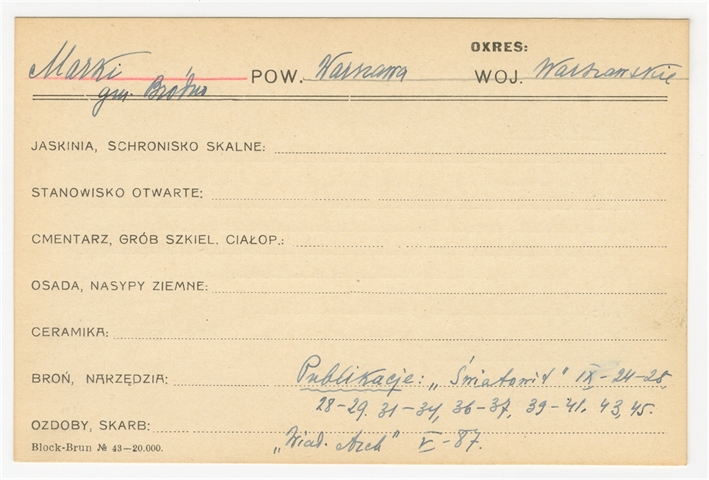 OKRES:
Marki POW. Warszawa WOJ. Warszawskie
gm. Bródno
JASKINIA, SCHRONISKO SKALNE:
STANOWISKO OTWARTE:
CMENTARZ, GRÓB SZKIEL. CIAŁOP.:
OSADA, NASYPY ZIEMNE:
CERAMIKA:
BROŃ, NARZĘDZIA: Publikacje: „Światowit" IX-24-28,
28-29, 31-34, 36-37, 39-41, 43, 45.
OZDOBY, SKARB: „Wiad. Arch" V-87.
Block-Brun № 43-20.000.